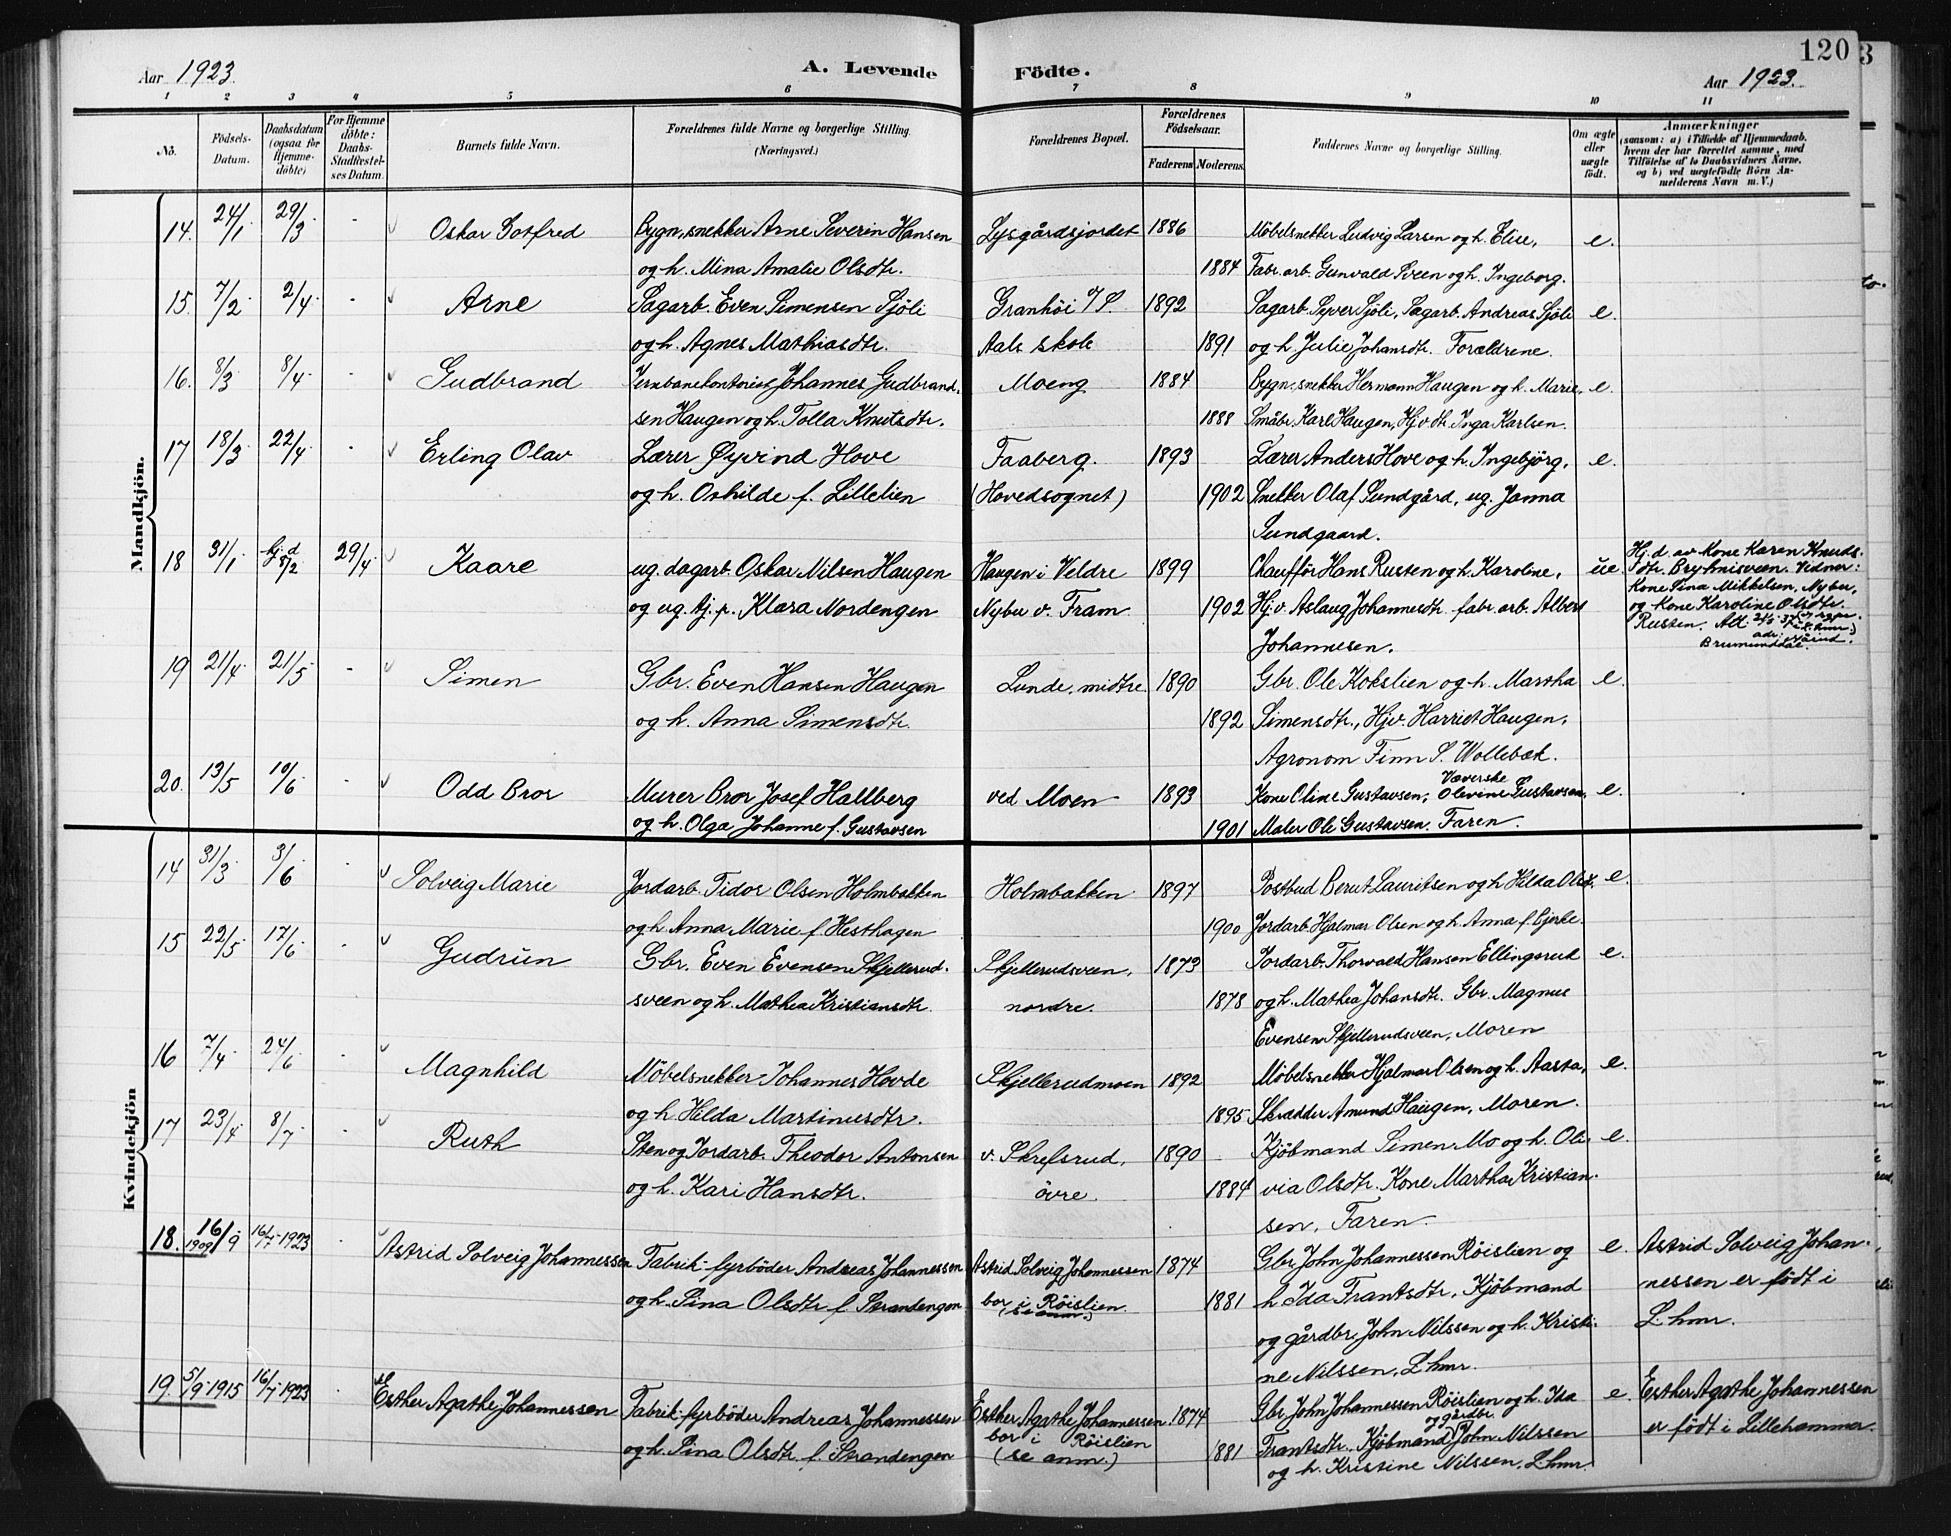 Aar 1923.
A. Levende Födte.
Aar 1923.
120
3
1 2 3 4 5 6 7 8 9 10 11
No.
Födsels-Datum.
Daabsdatum (ogsaa for Hjemmedöbte)
For Hjemmedöbte: Daabs-Stadfæstelses Datum.
Barnets fulde Navn.
Forældrenes fulde Navne og borgerlige Stilling.
(Næringsvei.)
Forældrenes Bopæl.
Forældrenes Födselsaar.
Faderens
Moderens
Faddernes Navne og borgerlige Stilling.
Om ægte eller uægte födt.
Anmærkninger
(saasom: a) i Tilfælde af Hjemmedaab.
hvem der har forrettet samme, med
Tilföielse af to Daabsvidners Navne.
og b) ved uægtefödte Börn An-
melderens Navn m. V.)
Mandkjön.
14. 24/1. 29/3 - Oskar Gotfred Bygn.snekker Arne Severin Hansen Lysgårdsjordet 1886 Möbelsnekker Ludvig Larsen og h. Elise, e.
og h. Mina Amalie Olsdtr. 1884 Fabr. arb. Gunvald Sveen og h. Ingeborg.
15. 7/2 2/4 - Arne Sagarb. Even Simensen Sjöli Granhöi 1892 Sagarb. Syver Sjöli, Sagarb. Andreas Sjöli e.
og h. Agnes Mathiasdtr. Aals skole 1891 og h. Julie Johansdtr. Forældrene.
16. 8/3 8/4 - Gudbrand Jernbanekontorist Johannes Gudbrand- Moeng 1884 Bygn.snekker Hermann Haugen og h. Marie, e.
sen Haugen og h. Tolla Knutsdtr. 1888 Småbr. Karl Haugen, Hj.v.dtr. Inga Karlsen.
17 18/3 22/4 - Erling Olav Lærer Øyvind Hove Faaberg. 1893 Lærer Anders Hove og h. Ingebjörg, e.
og h. Oshilde f. Lillelien (Hovedsognet) 1902 Snekker Olaf Sundgård, ug. Janna
Sundgaard.
18 31/1 hj.d 8/2 29/4 Kaare ug. dagarb. Oskar Nilsen Haugen Haugen i Veldre 1899 Chaufför Hans Rusten og h. Karoline, ue.
og ug. tj.p. Klara Nordengen Nybu v. Fram 1902 Hj.v. Aslaug Johannesdtr. fabr. arb. Albert
Johannesen.
Hj. d. av Kone Karen Knuds-
dtr. Bryhnisveen. Vidner:
Kone Sina Mikkelsen, Nybu,
og Kone Karoline Olsdtr.
Rusten.
Brumunddal.
19 21/4 21/5 - Simen Gbr. Even Hansen Haugen Lunde, midtre 1890 Gbr. Ole Kokslien og h. Martha e.
og h. Anna Simensdtr. 1892 Simensdtr., Hjv. Harriet Haugen,
Agronom Finn S. Wollebæk.
20. 13/5 10/6 - Odd Bror Murer Bror Josef Hallberg ved Moen 1893 Kone Oline Gustavsen, Væverske Olevine Gustavsen, e.
og h. Olga Johanne f. Gustavsen 1901 Maler Ole Gustavsen. Faren.
Kvindekjön
14 31/3 3/6 - Solveig Marie Jordarb. Tidor Olsen Holmbakken Holmbakken 1897 Postbud Berut Lauritsen og h Hilda Olsdt. e.
og h. Anna Marie f. Hesthagen 1900 Jordarb. Hjalmar Olsen og h. Anna f. Bjerke.
15 22/5 17/6 - Gudrun Gbr. Even Evensen Skjellerud- Skjellerudsveen, 1873 Jordarb. Thorvald Hansen Ellingsrud e.
sveen og h. Mathea Kristiansdtr. nordre. 1878 og h. Mathea Johansdtr. Gbr. Magnus
Evensen Skjellerudsveen, Moren
16 7/4 24/6 - Magnhild Möbelsnekker Johannes Hovde Skjellerudmoen 1892 Möbelsnekker Hjalmar Olsen og h. Aasta, e.
og h. Hilda Martinusdtr. 1895 Skrædder Amund Haugen, Moren.
17 23/4 8/7 - Ruth Sten og Jordarb. Theodor Antonsen v. Skrefsrud, 1890 Kjöbmand Simen Mo og h. Oli- e.
og h. Kari Hansdtr. övre. 1884 via Olsdtr. Kone Martha Kristian-
sen, Faren.
18. 16/9 1909 16/7-1923 - Astrid Solveig Johannessen Fabrik-fyrböder Andreas Johannessen Astrid Solveig Johannessen 1874 Gbr. John Johannessen Röislien og e. Astrid Solveig Johan-
og h. Sina Olsdtr. f. Strandengen bor i Röislien. (se anm.) 1881 h Ida Frantsdtr. Kjöbmand nessen er födt i
og gårdbr. John Nilssen og h. Kristi- L.hmr.
ne Nilssen, L.hmr.
19. 5/9-1915 16/7-1923 - Esther Agathe Johannessen Fabrik-fyrböder Andreas Johannessen Esther Agathe Johannessen 1874 Gbr. John Johannessen Röislien og h. Ida e. Esther Agathe Johannessen
og h. Sina Olsdtr. f. Strandengen bor i Röislien 1881 Frantsdtr. Kjöbmand og gårdbr. John Nilssen er födt i Lillehammer.
(se anm.) og h. Kristine Nilssen, L.hmr.